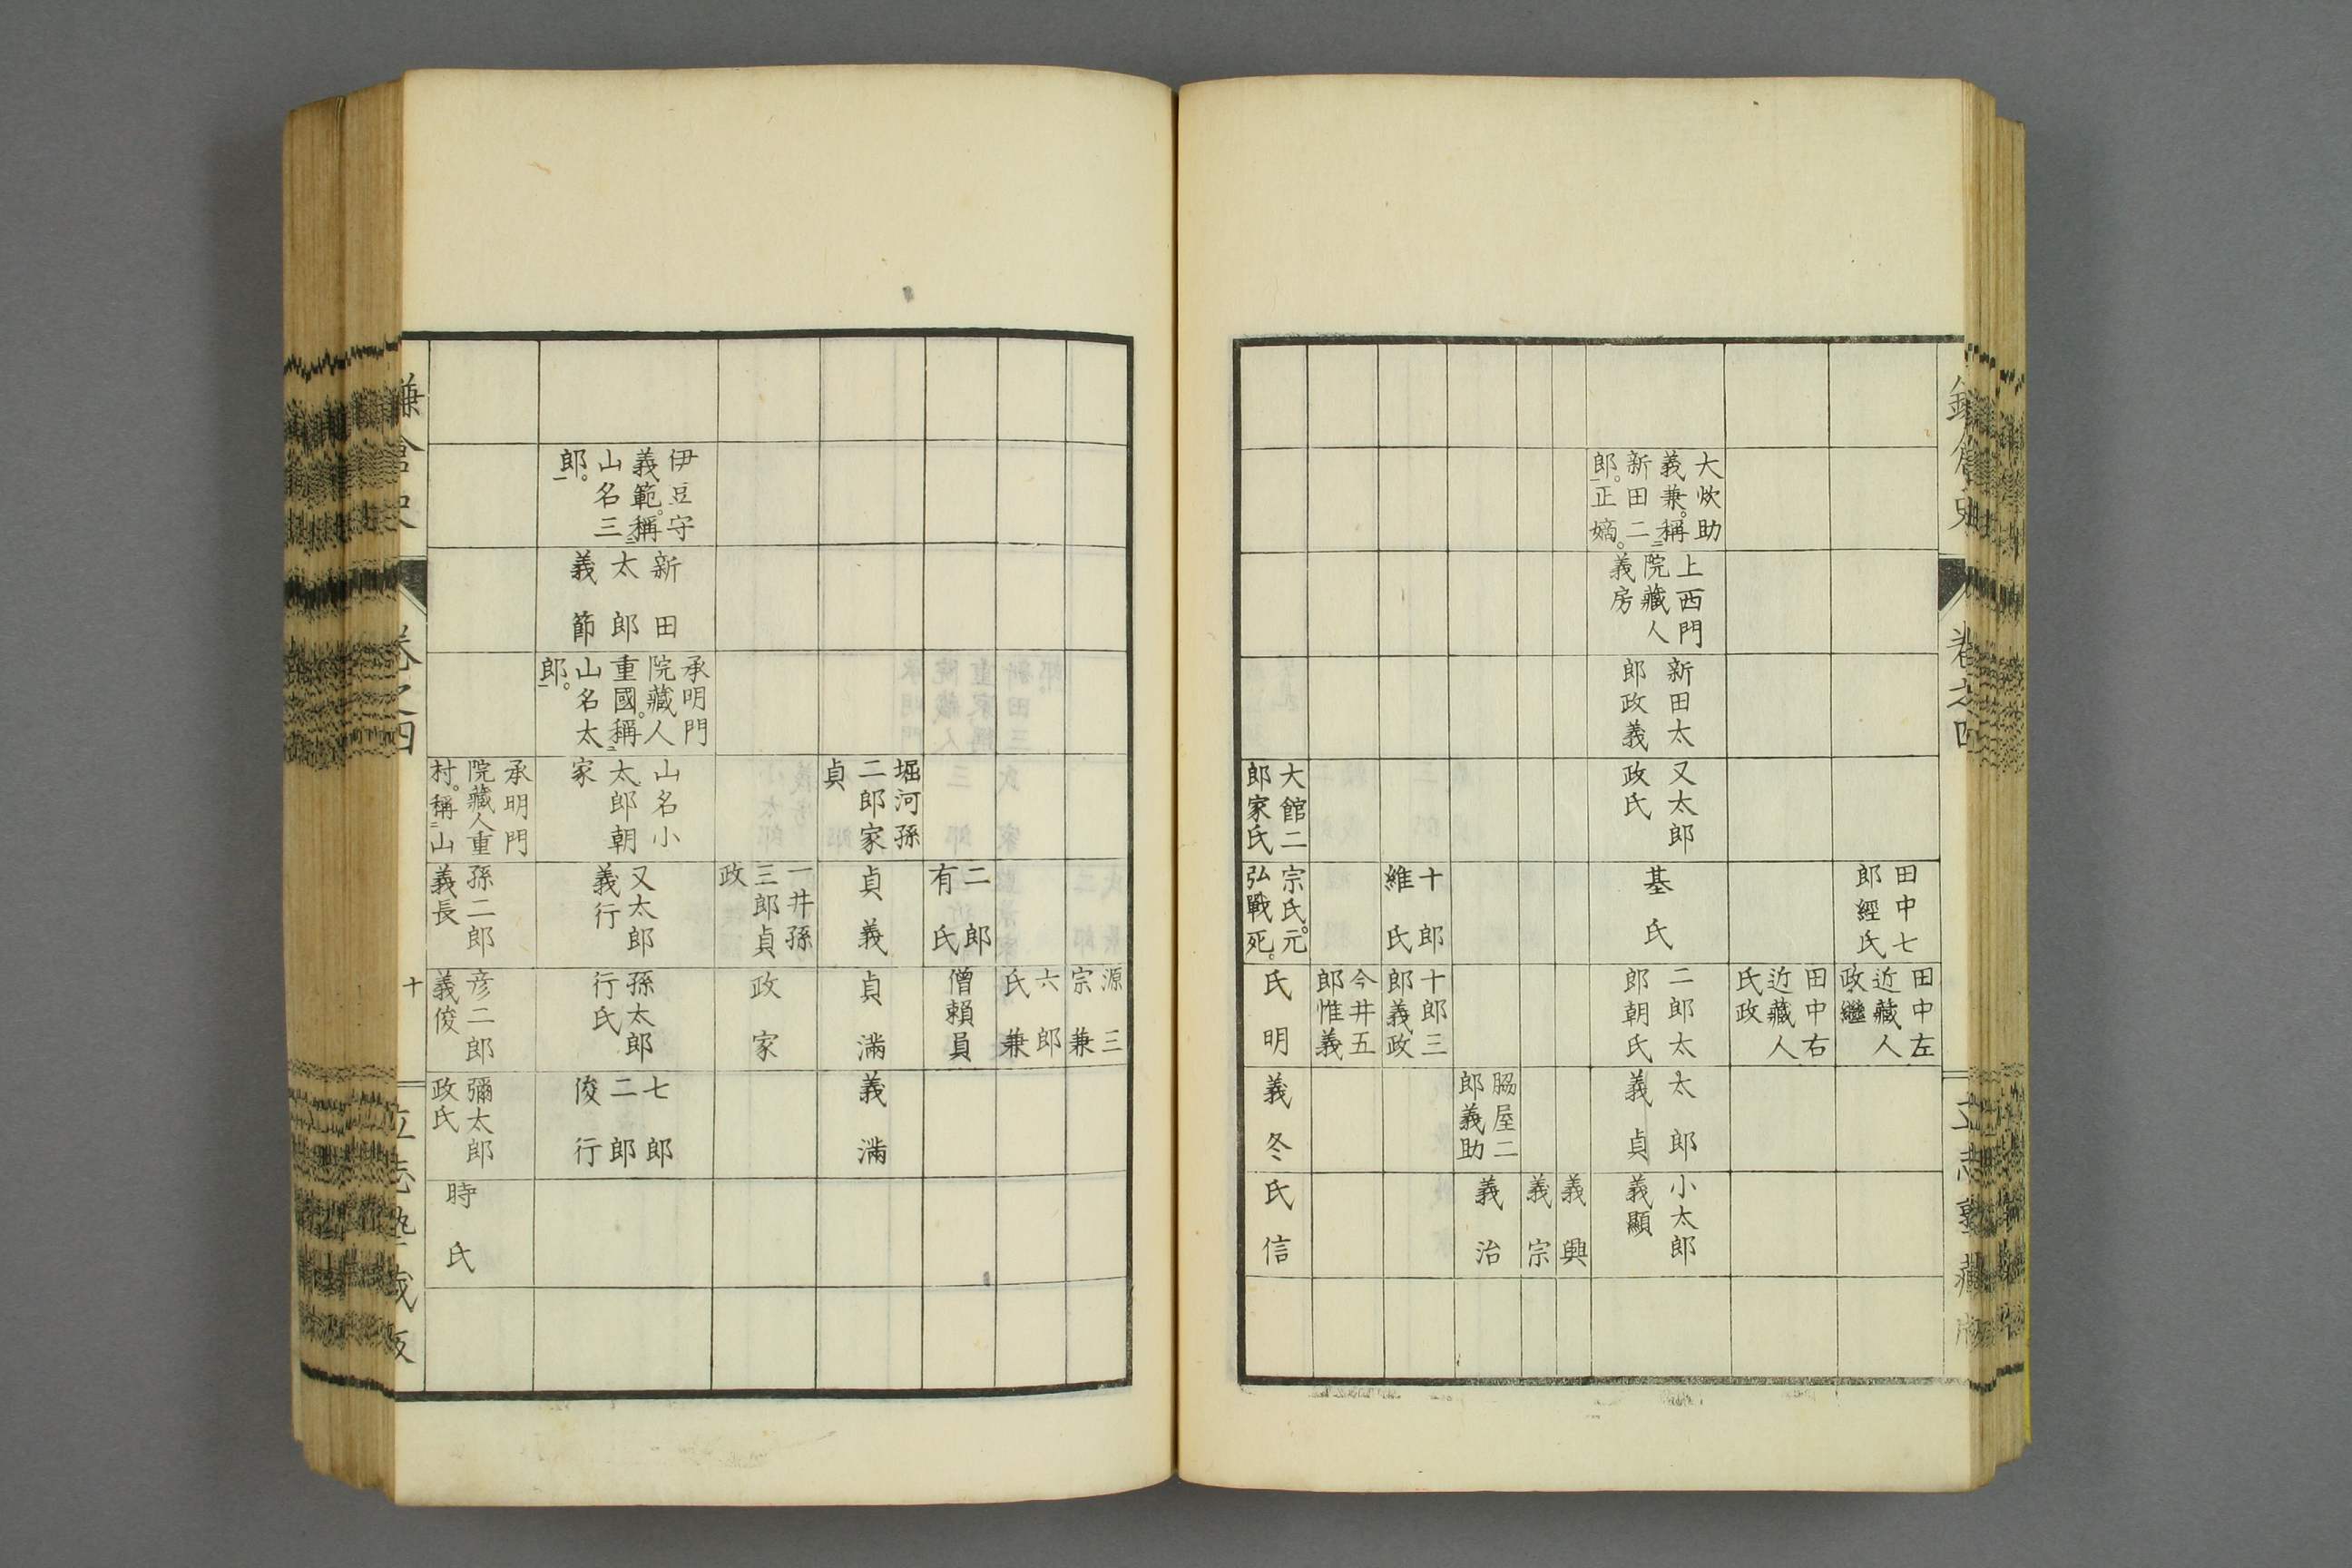 卷之四
田中七
郎經氏
田中左
近藏人
政繼
田中右
近藏人
氏政
大炊助
義兼。稱二
新田二
郎一。正嫡。
上西門
院藏人
義房
新田太
郎政義
又太郎
政氏
基氏
二郎太
郎朝氏
太郎
義貞
小太郎
義顯
義興
義宗
脇屋二
郎義助
義治
十郎
維氏
十郎三
郎義政
今井五
郎惟義
大館二
郎家氏
宗氏。元
弘戰死。
氏明
義冬
氏信
源三
宗兼
六郎
氏兼
二郎
有氏
僧賴員
堀河孫
二郎家
貞
貞義
貞滿
義滿
一井孫
三郎貞
政
政家
伊豆守
義範。稱二
山名三
郎一。
新田
太郎
義節
承明門
院藏人
重國。稱二
山名太
郎一。
山名小
太郎朝
家
又太郎
義行
孫太郎
行氏
七郎
二郎
俊行
承明門
院藏人重
村。稱二山
孫二郎
義長
彦二郎
義俊
彌太郎
政氏
時氏
卷之四
十